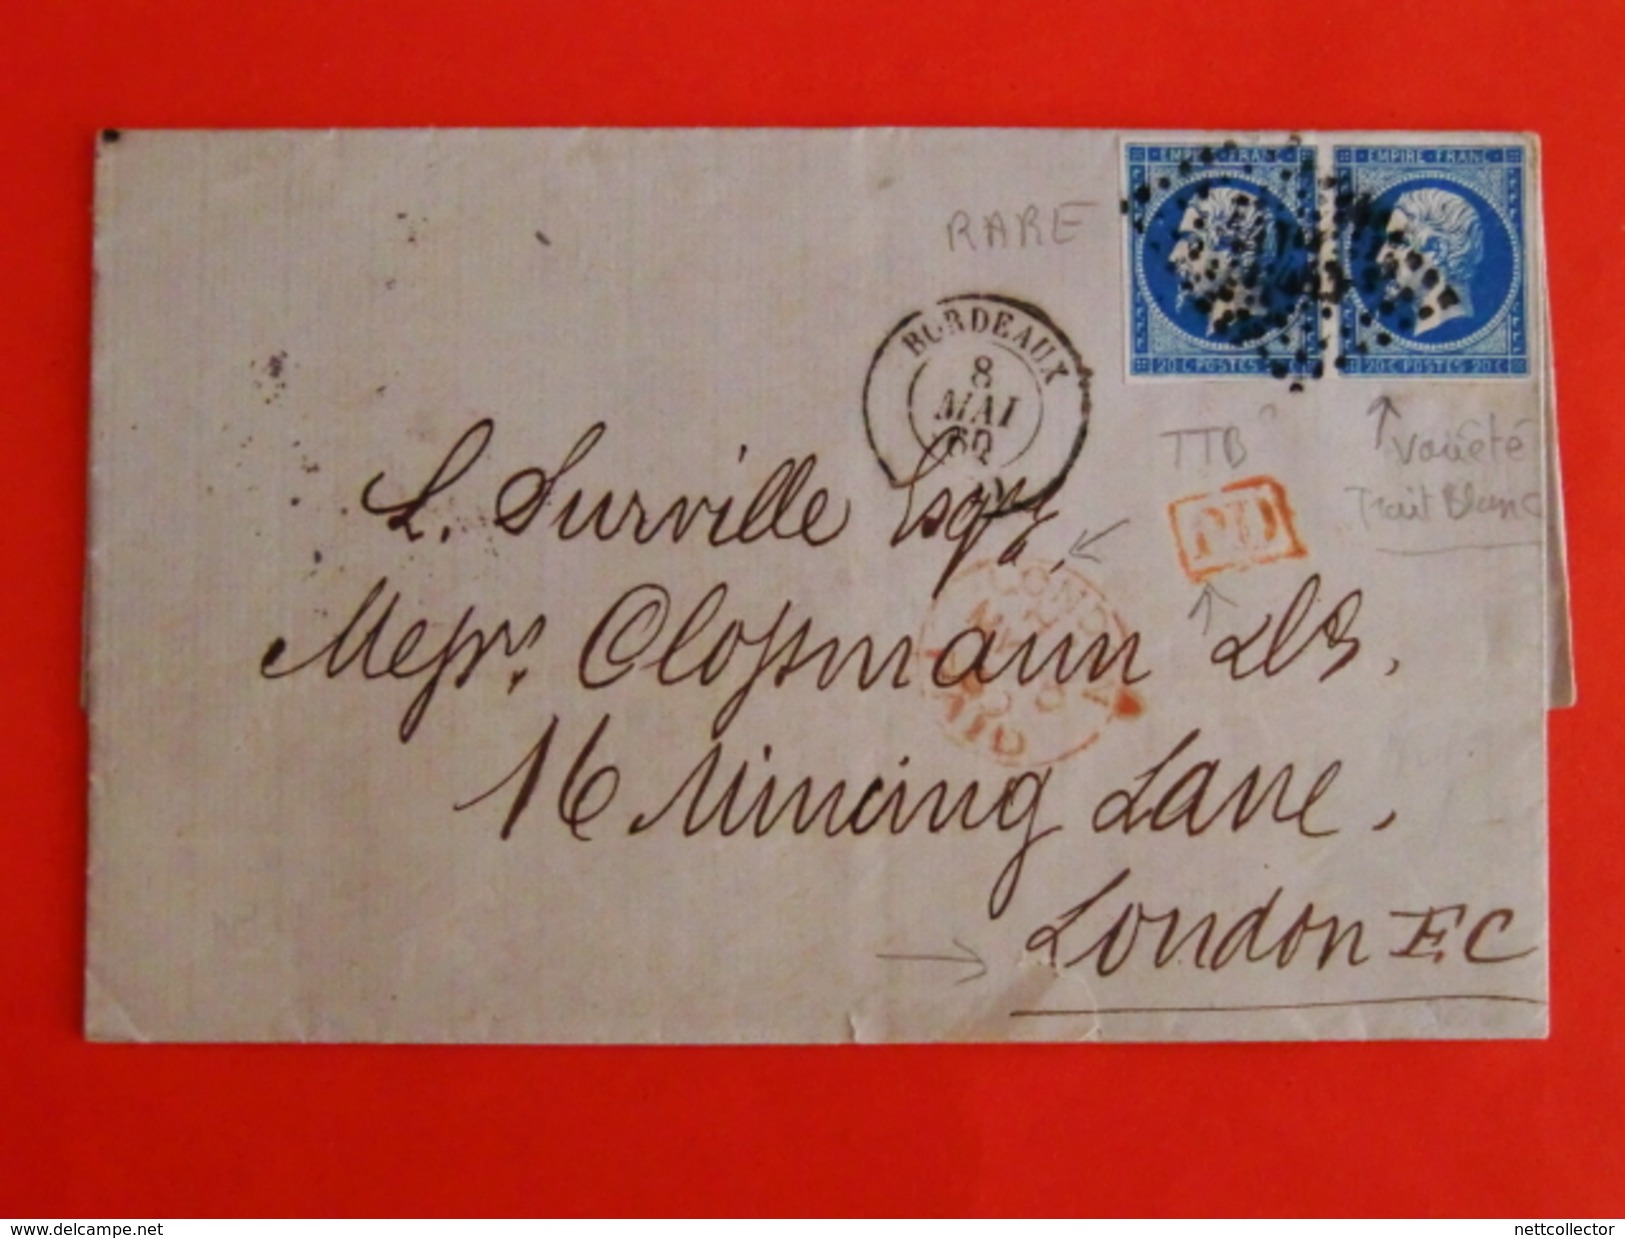 EMPIRE FRANC EMPIRE FRANC
20 C POSTES 20 C POSTES 20 C
RARE
BORDEAUX
8
MAI
60
TTB
Variété
Trait Blanc
PD
L. Surville Esqre,
LONDON
PAID
Messrs Clossmann & Co,
16 Mincing Lane,
London E.C
www.delcampe.net
nettcollector